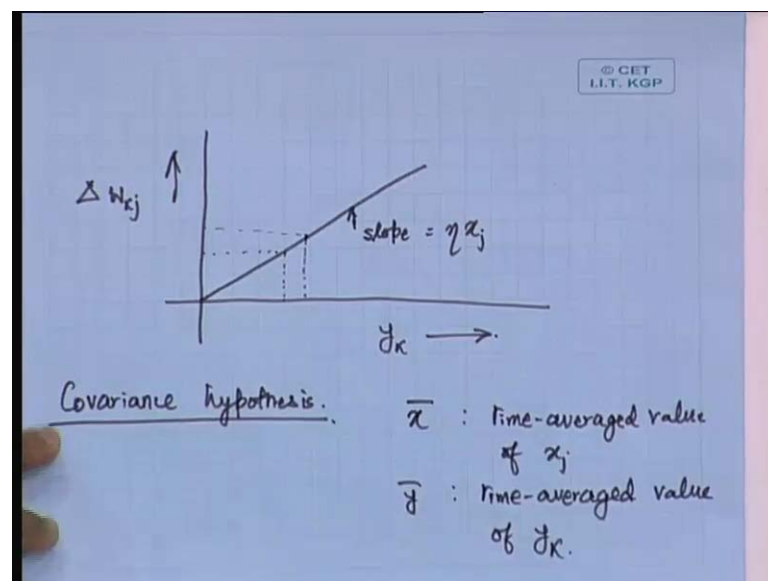 © CET
I.I.T. KGP
Δ Wkj
slope = η xj
yk
Covariance hypothesis.
x̄ : Time-averaged value
of xj
ȳ : Time-averaged value
of yk.